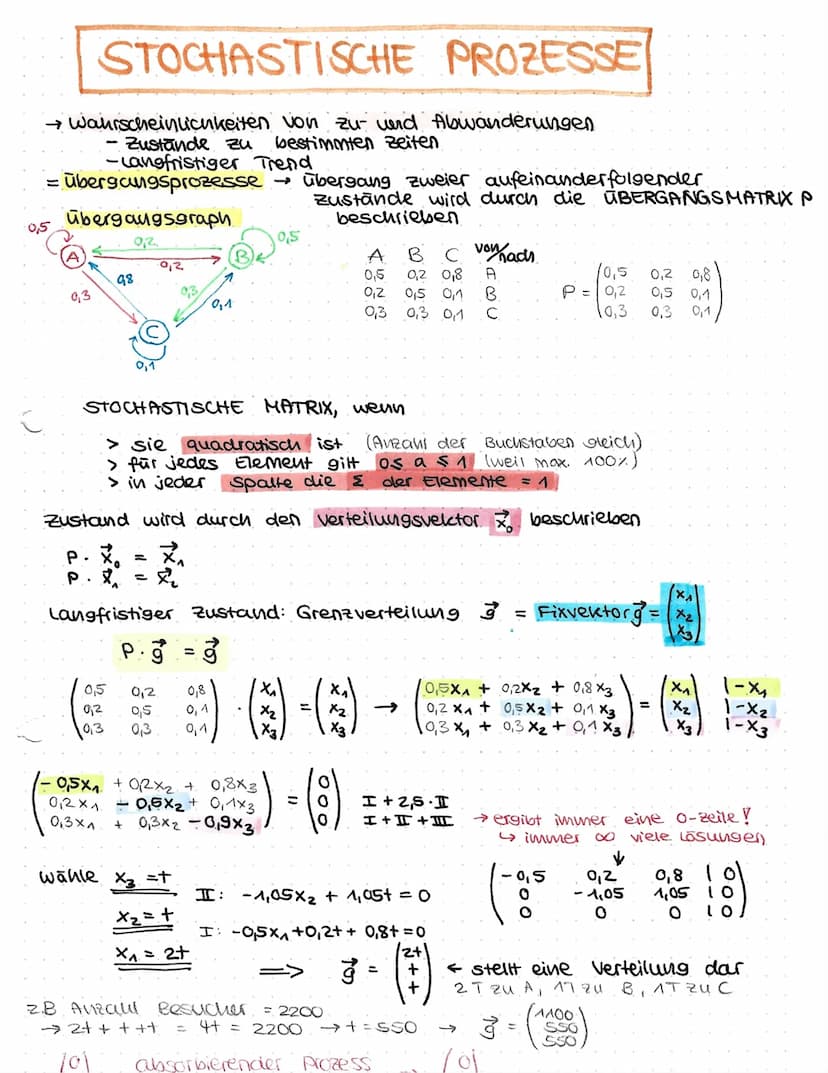 STOCHASTISCHE PROZESSE
→ Wahrscheinlichkeiten von zu- und Abwanderungen
- Zustände zu bestimmten Zeiten
- Langfristiger Trend
= Übergangsprozesse → Übergang zweier aufeinanderfolgender
Zustände wird durch die ÜBERGANGSMATRIX P
beschrieben
Übergangsgraph
0,5 A 0,2 0,2 B 0,5
0,3 0,8 0,3 0,1
C
0,1
A B C von/nach
0,5 0,2 0,8 A
0,2 0,5 0,1 B
0,3 0,3 0,1 C
P = (0,5 0,2 0,8
0,2 0,5 0,1
0,3 0,3 0,1)
STOCHASTISCHE MATRIX, wenn
> sie quadratisch ist (Anzahl der Buchstaben gleich)
> für jedes Element gilt 0 ≤ a ≤ 1 (weil max. 100%)
> in jeder Spalte die Σ der Elemente = 1
Zustand wird durch den Verteilungsvektor x⃗₀ beschrieben
P · x⃗₀ = x⃗₁
P · x⃗₁ = x⃗₂
Langfristiger Zustand: Grenzverteilung g⃗ = Fixvektor g⃗ = (x₁ x₂ x₃)
P · g⃗ = g⃗
(0,5 0,2 0,8) (x₁) = (x₁) → (0,5x₁ + 0,2x₂ + 0,8x₃) = (x₁) |-x₁
(0,2 0,5 0,1) · (x₂) = (x₂) (0,2x₁ + 0,5x₂ + 0,1x₃) = (x₂) |-x₂
(0,3 0,3 0,1) (x₃) (x₃) (0,3x₁ + 0,3x₂ + 0,1x₃) (x₃) |-x₃
(-0,5x₁ + 0,2x₂ + 0,8x₃) (0)
(0,2x₁ - 0,5x₂ + 0,1x₃) = (0) I + 2,5·II
(0,3x₁ + 0,3x₂ - 0,9x₃) (0) I + II + III
→ ergibt immer eine 0-Zeile!
↳ immer ∞ viele Lösungen
↓
(-0,5 0,2 0,8 | 0)
(0 -1,05 1,05 | 0)
(0 0 0 | 0)
wähle x₃ = t
II: -1,05x₂ + 1,05t = 0
x₂ = t
I: -0,5x₁ + 0,2t + 0,8t = 0
x₁ = 2t
=> g⃗ = (2t t t) ← stellt eine Verteilung dar
2T zu A, 1T zu B, 1T zu C
z.B Anzahl Besucher = 2200
→ 2t + t + t = 4t = 2200 → t = 550 → g⃗ = (1100 550 550)
(0) absorbierender Prozess (0)